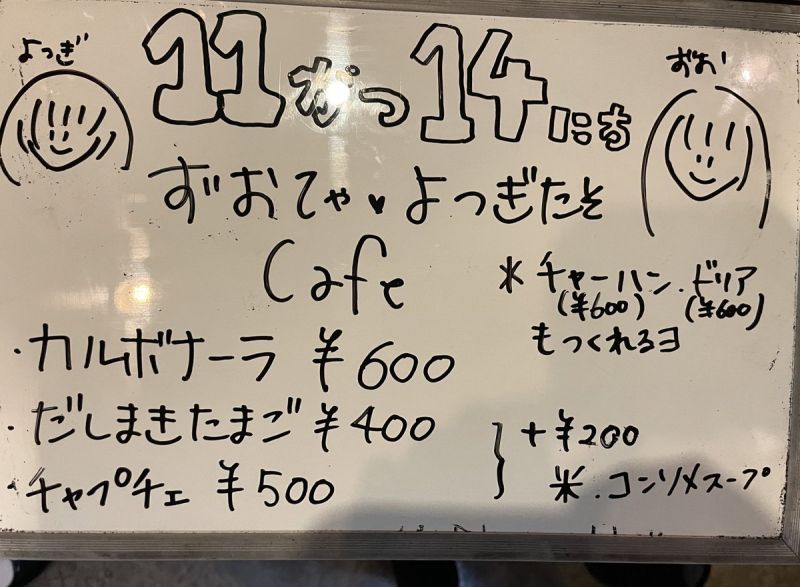 よつぎ
11がつ14にち
ずおてゃ♥よつぎたそ
Cafe
*チャーハン.ドリア
(¥600) (¥600)
もつくれるヨ
・カルボナーラ ¥600
・だしまきたまご ¥400
・チャプチェ ¥500
} +¥200
米.コンソメスープ